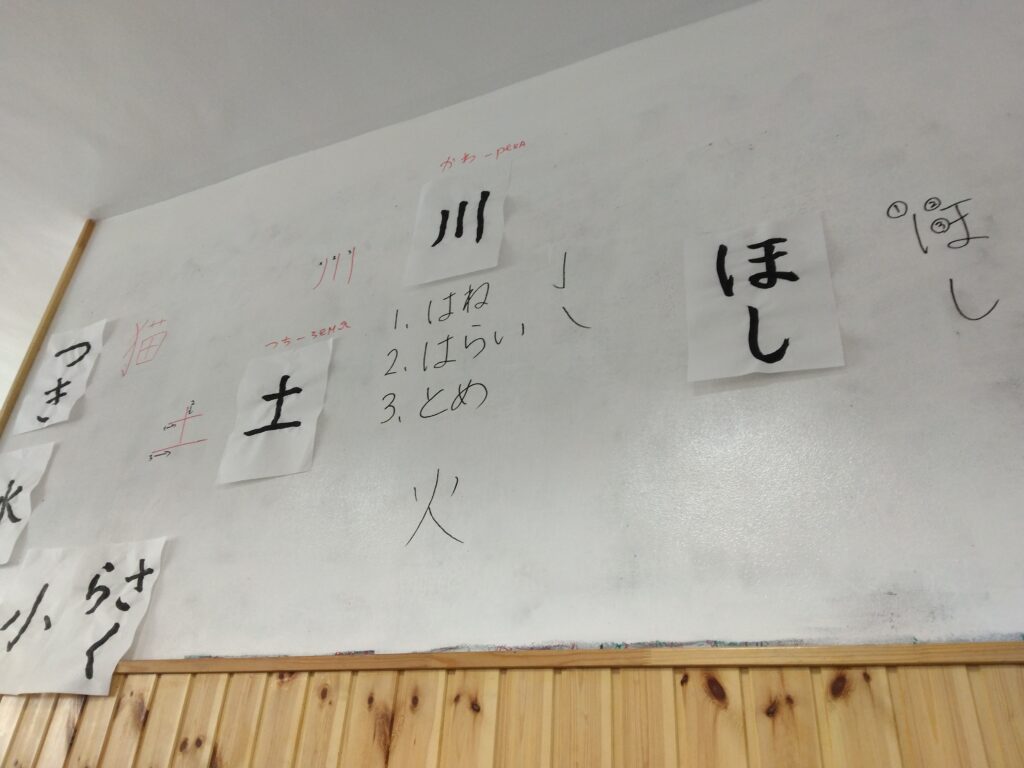 かわ-река
川
川
猫
つち-земля
土
土
1. はね
2. はらい
3. とめ
火
ほし
① ② ③
ほ
し
つき
小
さくら